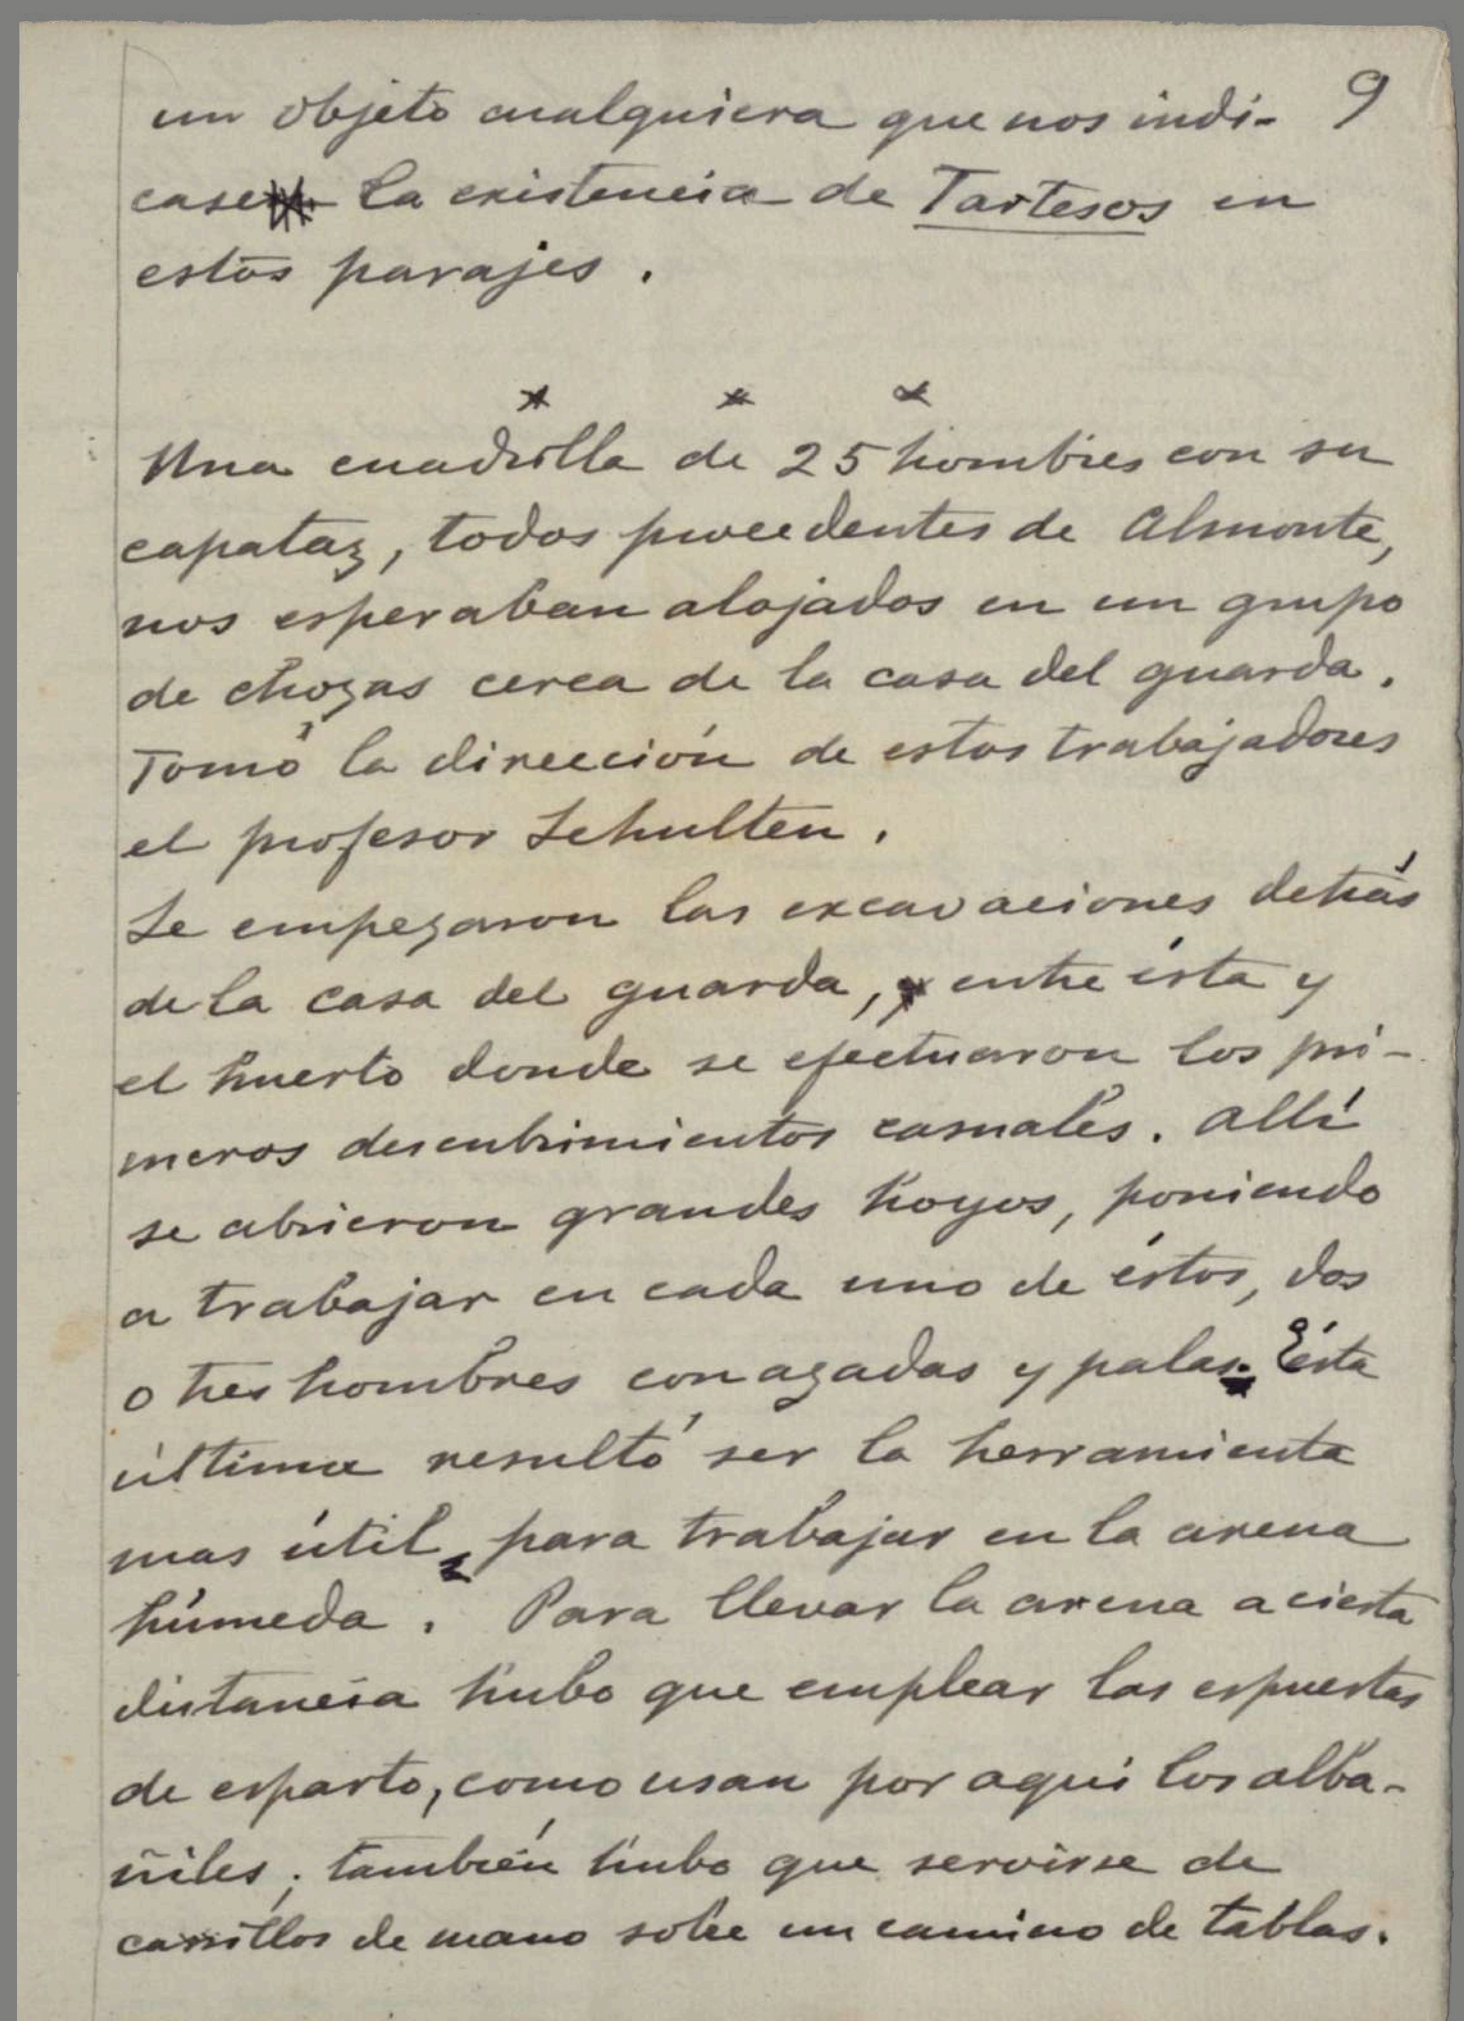 un objeto cualquiera que nos indi- 9
case la existencia de Tartesos en
estos parajes.
* * *
Una cuadrilla de 25 hombres con su
capataz, todos procedentes de Almonte,
nos esperaban alojados en un grupo
de chozas cerca de la casa del guarda.
Tomó la dirección de estos trabajadores
el profesor Schulten.
Se empezaron las excavaciones detrás
de la casa del guarda, entre ésta y
el huerto donde se efectuaron los pri-
meros descubrimientos casuales. Allí
se abrieron grandes hoyos, poniendo
a trabajar en cada uno de éstos, dos
o tres hombres con azadas y palas. Ésta
última resultó ser la herramienta
mas útil para trabajar en la arena
húmeda. Para llevar la arena a cierta
distancia hubo que emplear las espuertas
de esparto, como usan por aqui los alba-
ñiles; también hubo que servirse de
carrillos de mano sobre un camino de tablas.